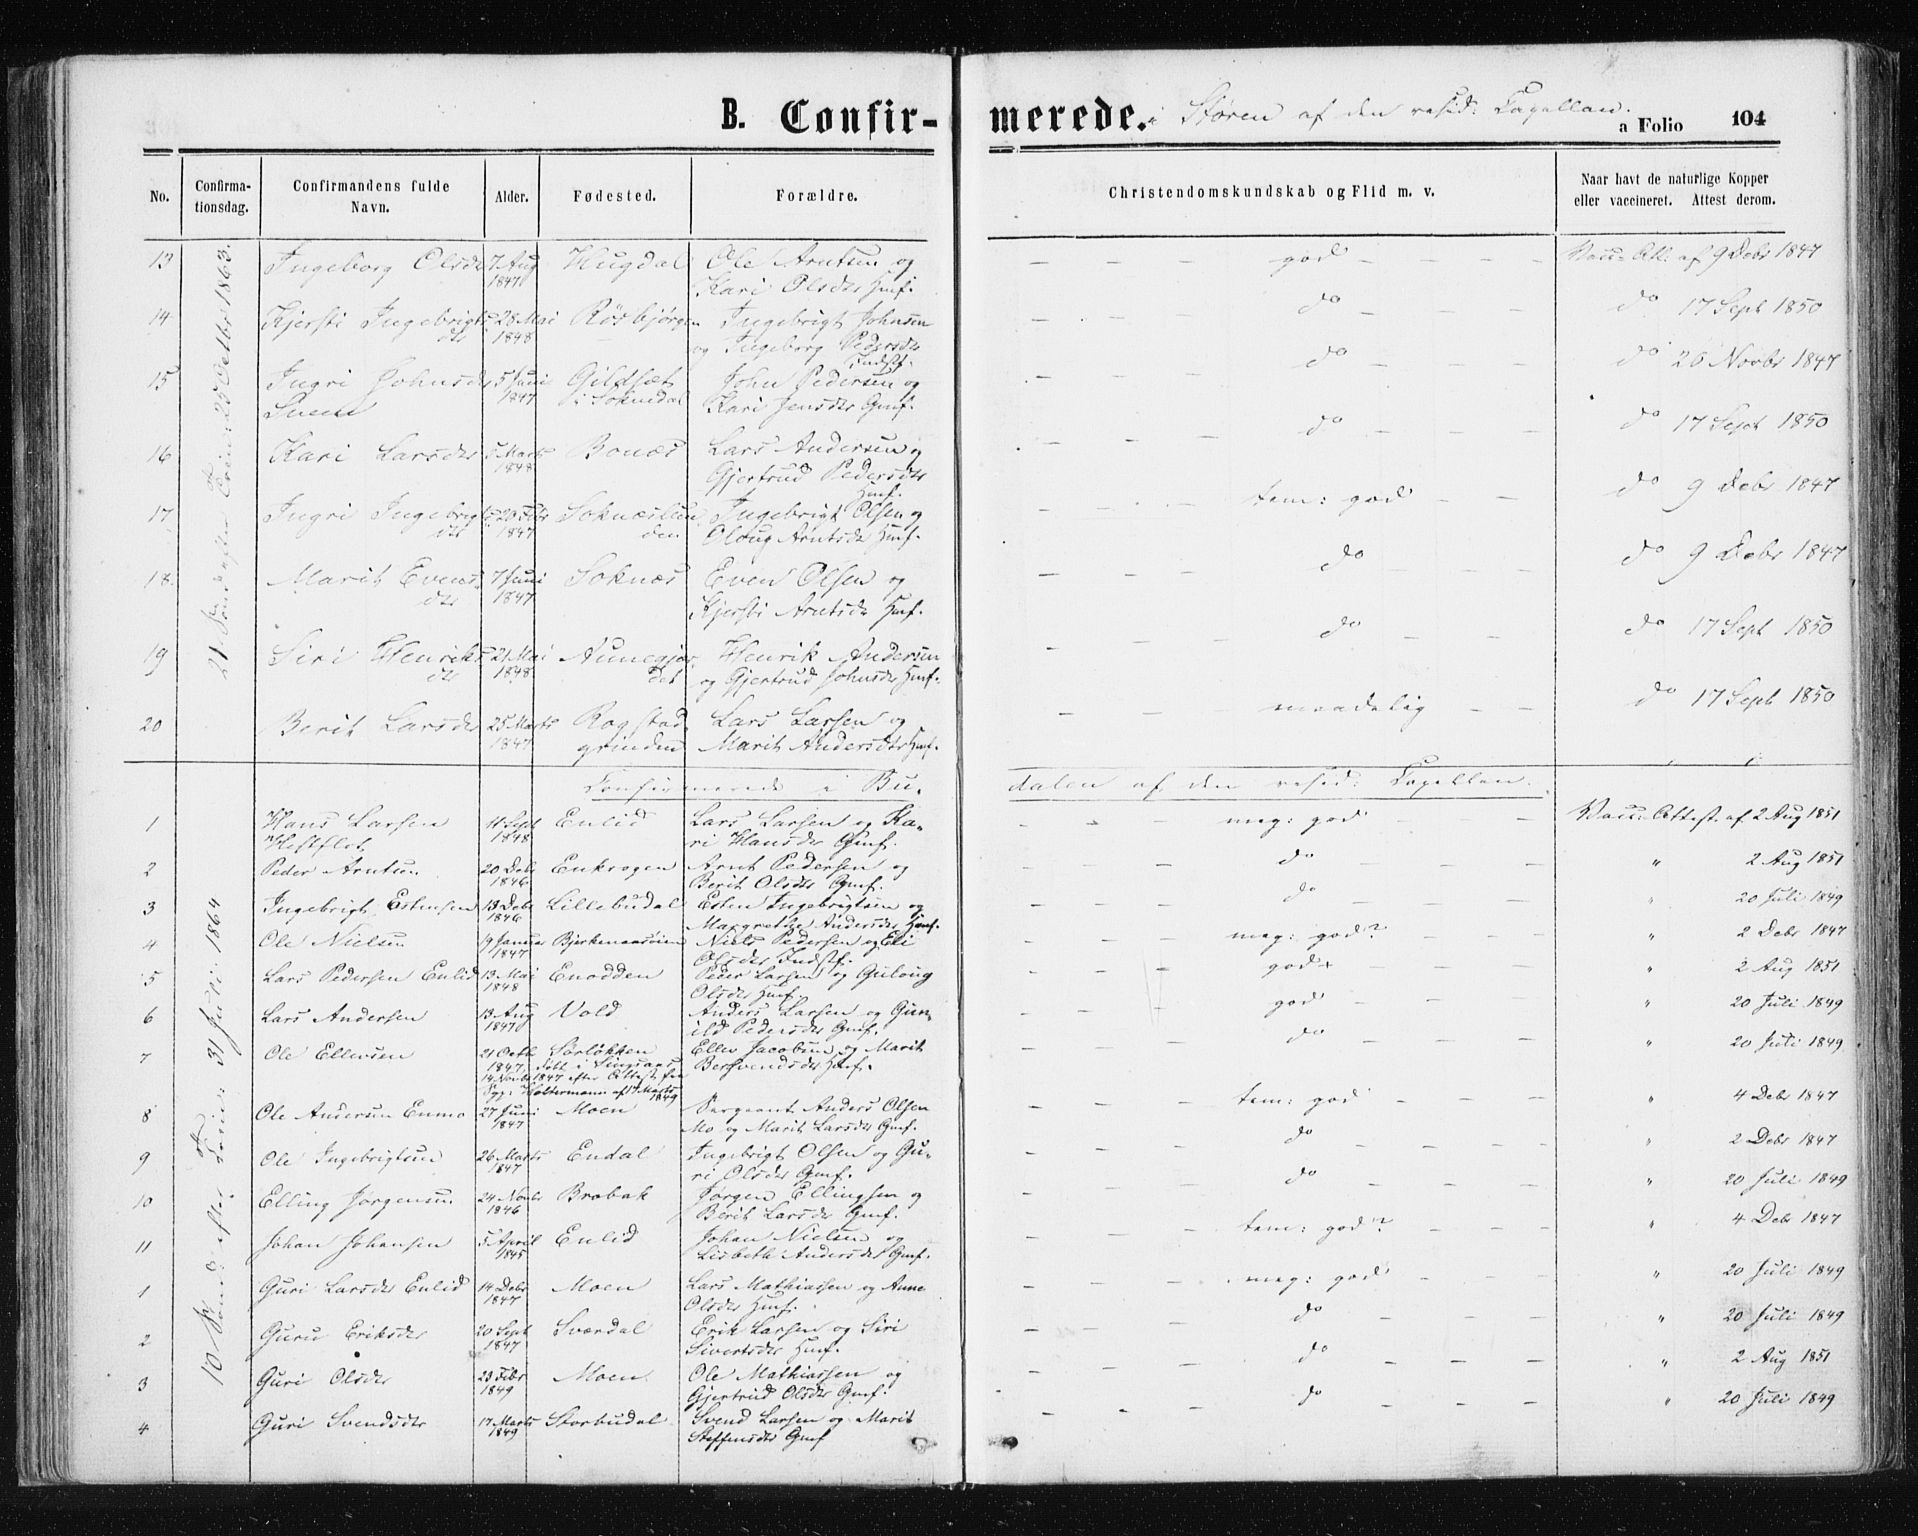 B. Confir- merede. i Støren af den resid: Capellan.
a Folio 104
No. Confirma-tionsdag. Confirmandens fulde Navn. Alder. Fødested. Forældre. Christendomskundskab og Flid m. v. Naar havt de naturlige Kopper eller vaccineret. Attest derom.
21 Sønd. efter Trin: 25 Octbr 1863.
13 Ingeborg Olsdr 7 Aug 1847 Hugdal Ole Arntsen og Kari Olsdr Hmf. god Vacc. Att: af 9 Debr 1847
14 Kjersti Ingebrigts dtr 28 Mai 1848 Rösbjørgen Ingebrigt Johnsen og Ingeborg Pedersdr Indstf. do do 17 Sept 1850
15 Ingri Johnsdr 5 Juni 1847 Gildset i Soknedal John Pedersen og Kari Jensdr Gmf. do do 26 Novbr 1847
16 Kari Larsdr 5 Marts 1848 Bonæs Lars Andersen og Gjertrud Pedersdtr Hmf. do do 17 Sept 1850
17. Ingri Ingebrigts dtr 20 Febr 1847 Soknæsbun den Ingebrigt Olsen og Oloug Arntsdr Hmf. tem: god do 9 Debr 1847
18. Marit Evens dtr 7 Juni 1847 Soknæs Even Olsen og Kjersti Arntsdr Hmf. do do 9 Debr 1847
19 Siri Henriks dtr 21 Mai 1848 Aunegjer det Henrik Andersen og Gjertrud Johnsdr Hmf. do do 17 Sept 1850
20 Berit Larsdr 25 Marts 1847 Rogstad grinden Lars Larsen og Marit Andersdtr Hmf. maadelig do 17 Sept 1850
Confirmerede i Bu- dalen af den resid: Capellan.
10 Sønd. efter Trin: 31 Juli 1864
1 Hans Larsen Hestflot 11 Sept 1848 Enlid Lars Larsen og Ka- ri Hansdr Gmf. meg: god Vacc. Attest af 2 Aug 1851
2 Peder Arntsen 20 Debr 1846 Enkrogen Arnt Pedersen og Berit Olsdr Gmf. do " 2 Aug 1851
3 Ingebrigt Estensen 13 Debr 1846 Lillebudal Esten Ingebrigtsen og Margrethe Andersdr Hmf. do " 20 Juli 1849
4 Ole Nielsen 19 Januar 1847 Bjerkenaasøien Niels Pedersen og Eli Olsdr Indstf. meg: god? " 2 Debr 1847
5 Lars Pedersen Enlid 13 Mai 1848 Enodden Peder Larsen og Guloug Olsdr Hmf. god+ " 2 Aug 1851
6 Lars Andersen 13 Aug 1847 Vold Anders Larsen og Gun- ild Pedersdr Gmf. god " 20 Juli 1849
7 Ole Ellevsen 21 Octb 1847 Sørløkken Ellev Jacobsen og Marit Bersvendsdr Hmf. do " 20 Juli 1849
døbt i Singsaas 14 Novbr 1847 efter Attest fra Sgp: Holtermann af 1 Marts 1849
8 Ole Andersen Enmo 27 Juni 1847 Moen Sergeant Anders Olsen Mo og Marit Larsdr Gmf. tem: god " 4 Debr 1847
9 Ole Ingebrigtsen 26 Marts 1847 Endal Ingebrigt Olsen og Gu- ri Olsdr Gmf. do " 2 Debr 1847
10 Elling Jørgensen 24 Novbr 1846 Brobak Jørgen Ellingsen og Berit Larsdr Gmf. do " 20 Juli 1849
11 Johan Johansen 5 April 1845 Enlid Johan Nielsen og Lisbeth Andersdr Gmf. tem: god? " 4 Debr 1847
1 Guri Larsdr Enlid 14 Debr 1847 Moen Lars Mathiassen og Anne Olsdr Hmf. meg: god " 20 Juli 1849
2 Guru Eriksdr 20 Sept 1847 Sværdal Erik Larsen og Siri Sivertsdr Hmf. do " 20 Juli 1849
3 Guri Olsdr 23 Febr 1849 Moen Ole Mathiassen og Gjertrud Olsdr Gmf. do " 2 Aug 1851
4 Guri Svendsdtr 17 Marts 1849 Storbudal Svend Larsen og Marit Steffensdtr Gmf do " 20 Juli 1849